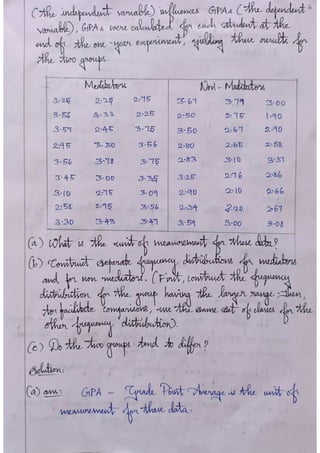 (the independent variable) influences GPAs (the dependent
variable), GPAs were calculated for each student at the
end of the one-year experiment, yielding these results for
the two groups.
Meditators Non-Meditators
3.25 2.25 2.75 3.67 3.79 3.00
3.56 3.33 2.25 2.50 2.75 1.90
3.57 2.45 3.75 3.50 2.67 2.90
2.95 3.30 3.56 2.80 2.65 2.58
3.56 3.78 3.75 2.83 3.10 3.37
3.45 3.00 3.35 3.25 2.76 2.86
3.10 2.75 3.09 2.90 2.10 2.66
2.58 2.95 3.56 2.34 3.20 2.67
3.30 3.43 3.47 3.59 3.00 3.08
(a) What is the unit of measurement for these data?
(b) Construct separate frequency distributions for meditators
and for non meditators. (First, construct the frequency
distribution for the group having the larger range. Then,
to facilitate comparisons, use the same set of classes for the
other frequency distribution).
(c) Do the two groups tend to differ?
Solution:
(a) ans: GPA - Grade Point Average is the unit of
measurement for these data.